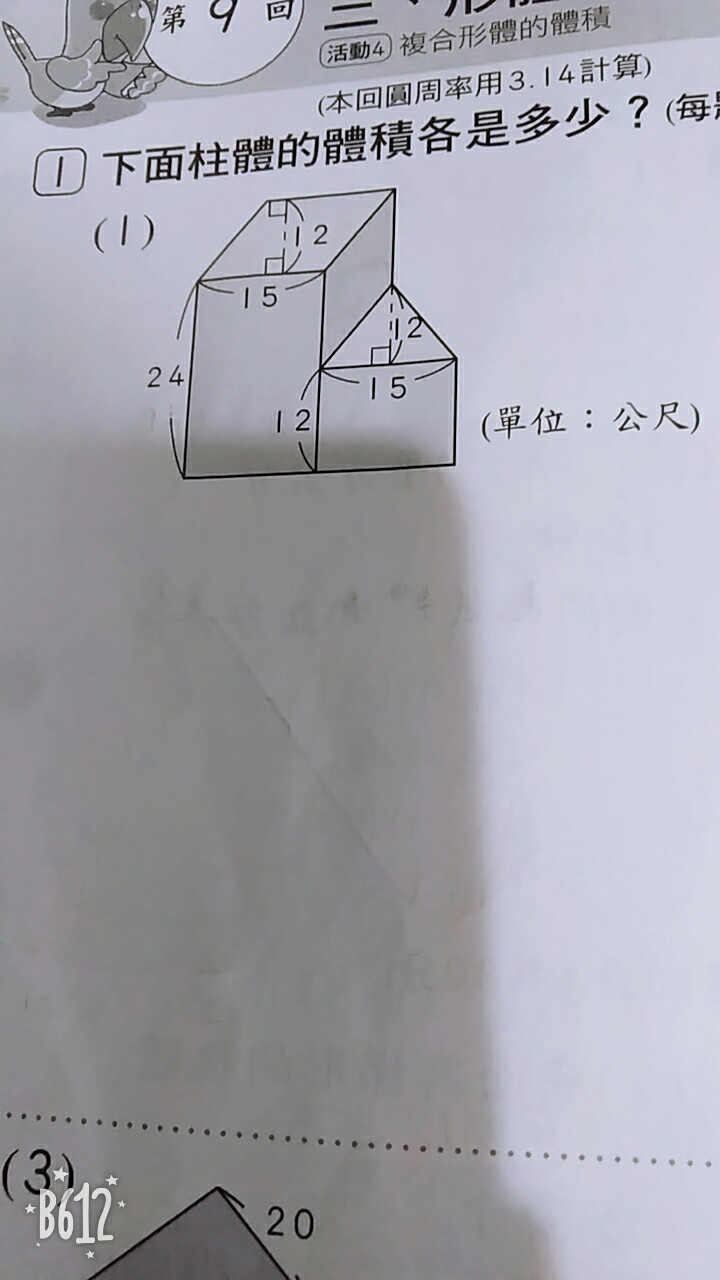 第9回
活動4 複合形體的體積
(本回圓周率用3.14計算)
1 下面柱體的體積各是多少？(每
(1)
12
15
24
12
15
12
(單位：公尺)
(3)
20
B612